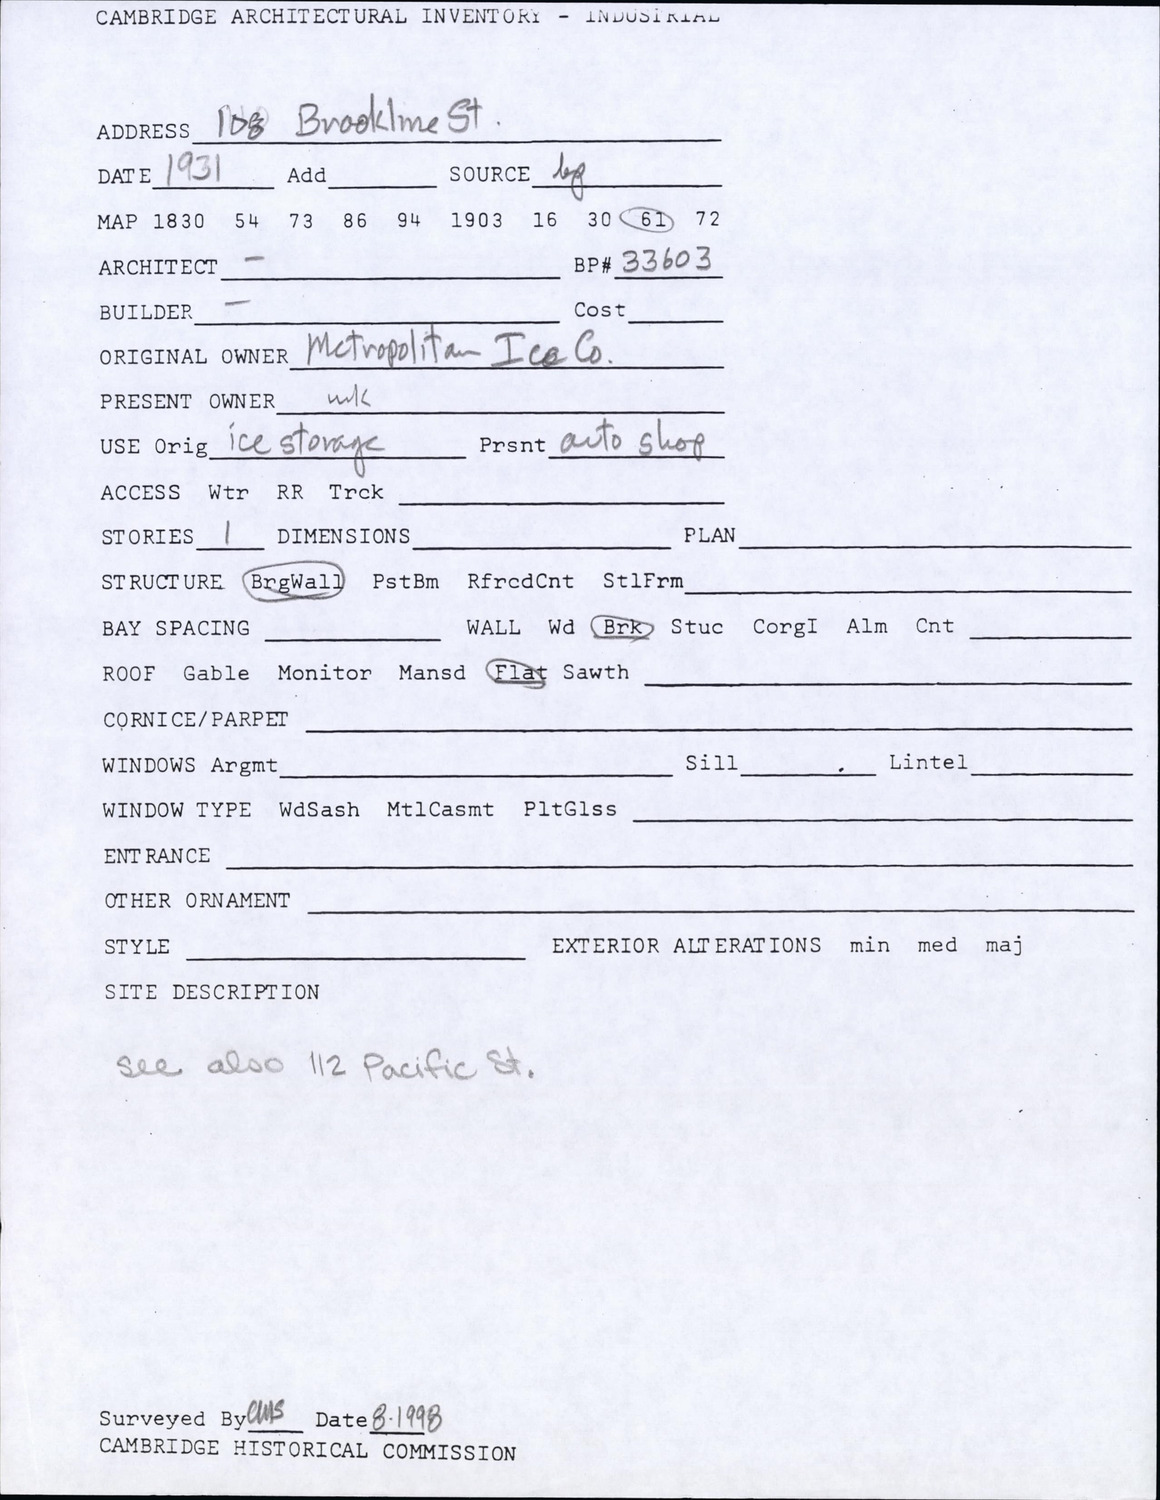 CAMBRIDGE ARCHITECTURAL INVENTORY - INDUSTRIAL
ADDRESS 108 Brookline St.
DATE 1931 Add SOURCE bp
MAP 1830 54 73 86 94 1903 16 30 61 72
ARCHITECT — BP# 33603
BUILDER — Cost
ORIGINAL OWNER Metropolitan Ice Co.
PRESENT OWNER unk
USE Orig ice storage Prsnt auto shop
ACCESS Wtr RR Trck
STORIES 1 DIMENSIONS PLAN
STRUCTURE BrgWall PstBm RfrcdCnt StlFrm
BAY SPACING WALL Wd Brk Stuc CorgI Alm Cnt
ROOF Gable Monitor Mansd Flat Sawth
CORNICE/PARPET
WINDOWS Argmt Sill Lintel
WINDOW TYPE WdSash MtlCasmt PltGlss
ENTRANCE
OTHER ORNAMENT
STYLE EXTERIOR ALTERATIONS min med maj
SITE DESCRIPTION
see also 112 Pacific St.
Surveyed By CMS Date 8.1998
CAMBRIDGE HISTORICAL COMMISSION